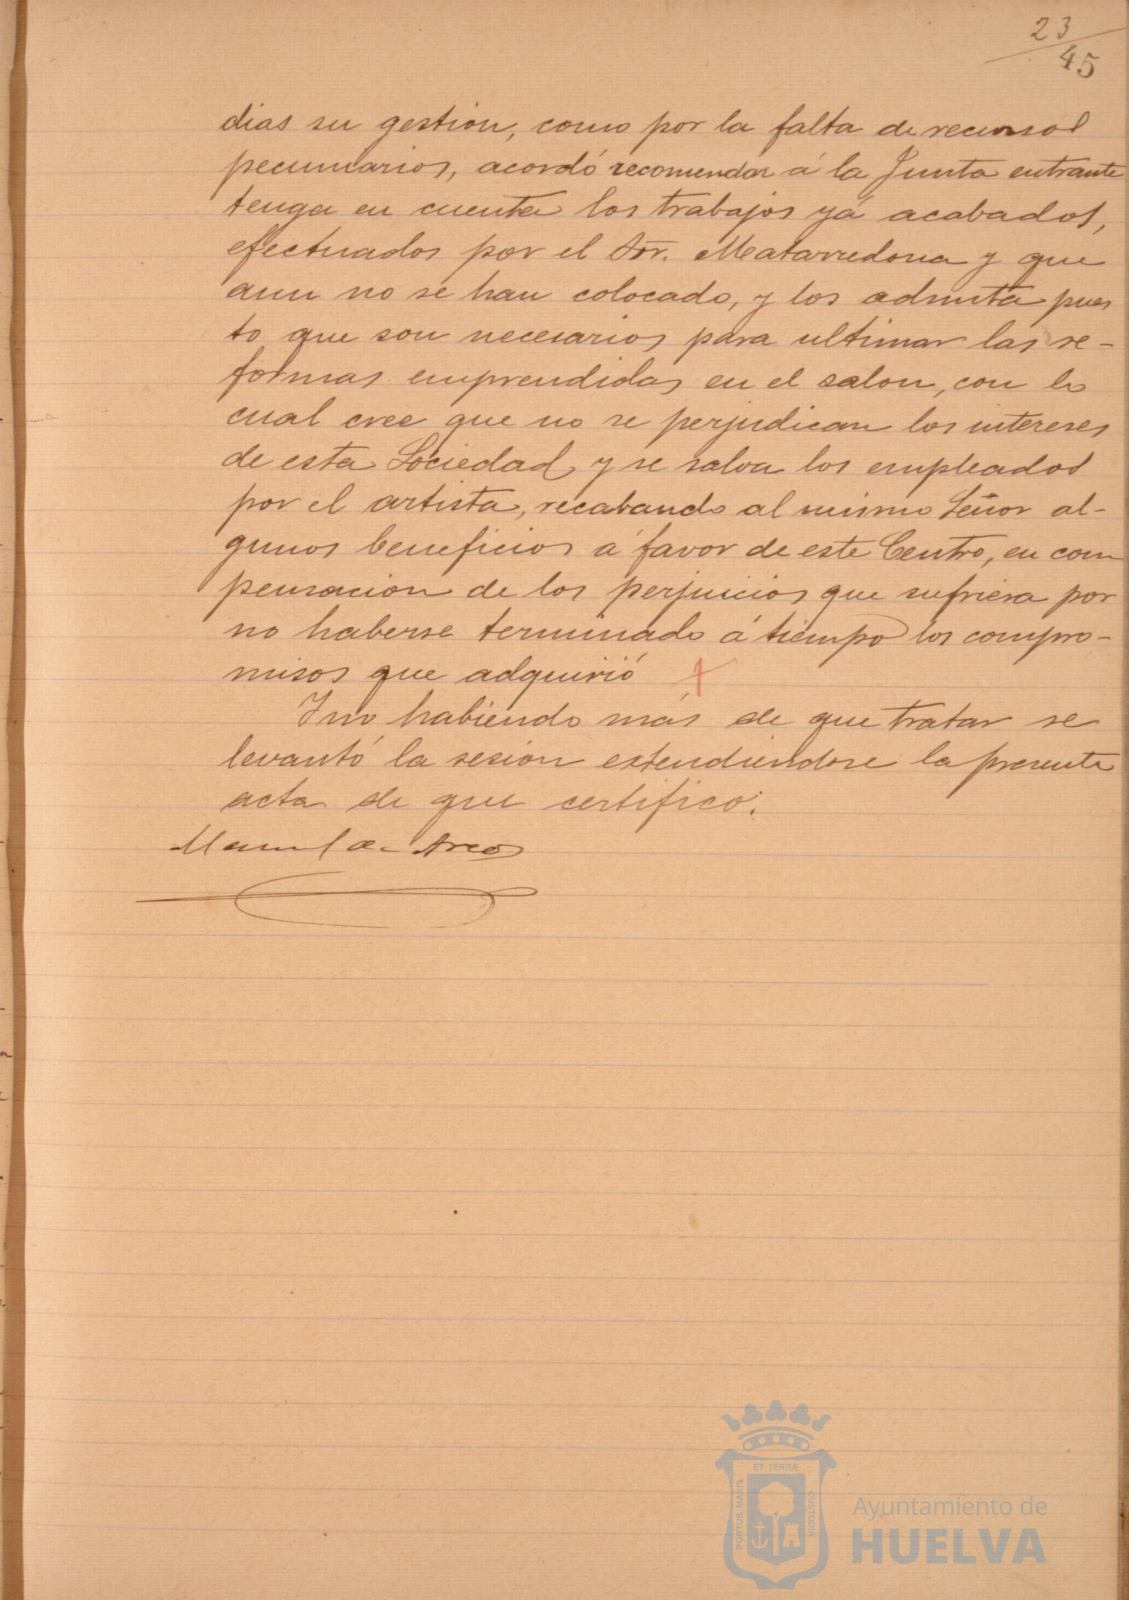 23
45
dias su gestión, como por la falta de recursos
pecuniarios, acordó recomendar á la Junta entrante
tenga en cuenta los trabajos yá acabados,
efectuados por el Sor. Matarredona y que
aun no se han colocado, y los admita pues
to que son necesarios para ultimar las re-
formas emprendidas en el salon, con lo
cual cree que no se perjudican los intereses
de esta Sociedad y se salva los empleados
por el artista, recabando al mismo Señor al-
gunos beneficios á favor de este Centro, en com
pensacion de los perjuicios que sufriera por
no haberse terminado á tiempo los compro-
misos que adquirió
Y no habiendo más de que tratar se
levantó la sesión extendiendose la presente
acta de que certifico.
Manuel de Arcos
ET TERRÆ
PORTUS MARIS
CUSTODIA
Ayuntamiento de
HUELVA